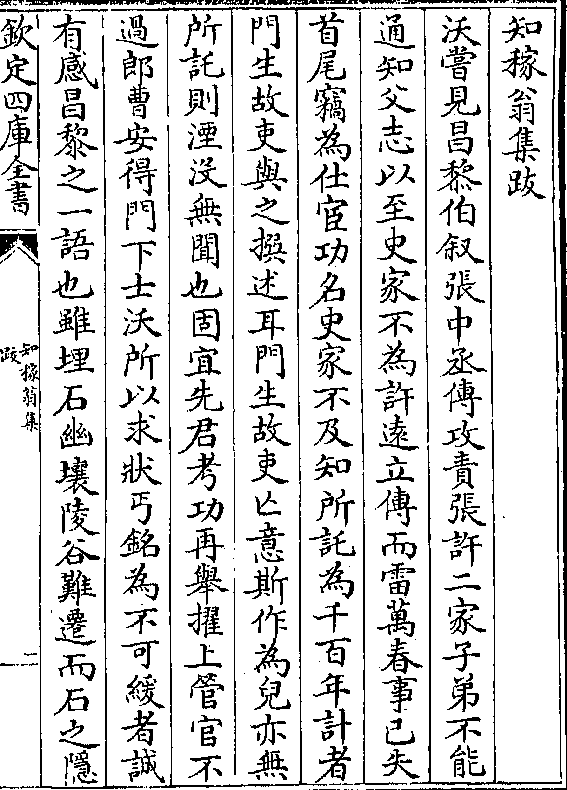 知稼翁集跋
沃嘗見昌黎伯叙張中丞傳攻責張許二家子弟不能
通知父志以至史家不為許遠立傳而雷萬春事已失
首尾竊為仕宦功名史家不及知所託為千百年計者
門生故吏與之撰述耳門生故吏亡意斯作為兒亦無
所託則湮沒無聞也固宜先君考功再舉擢上管官不
過郎曹安得門下士沃所以求狀丐銘為不可緩者誠
有感昌黎之一語也雖埋石幽壤陵谷難遷而石之隱
欽定四庫全書
知稼翁集
跋
二